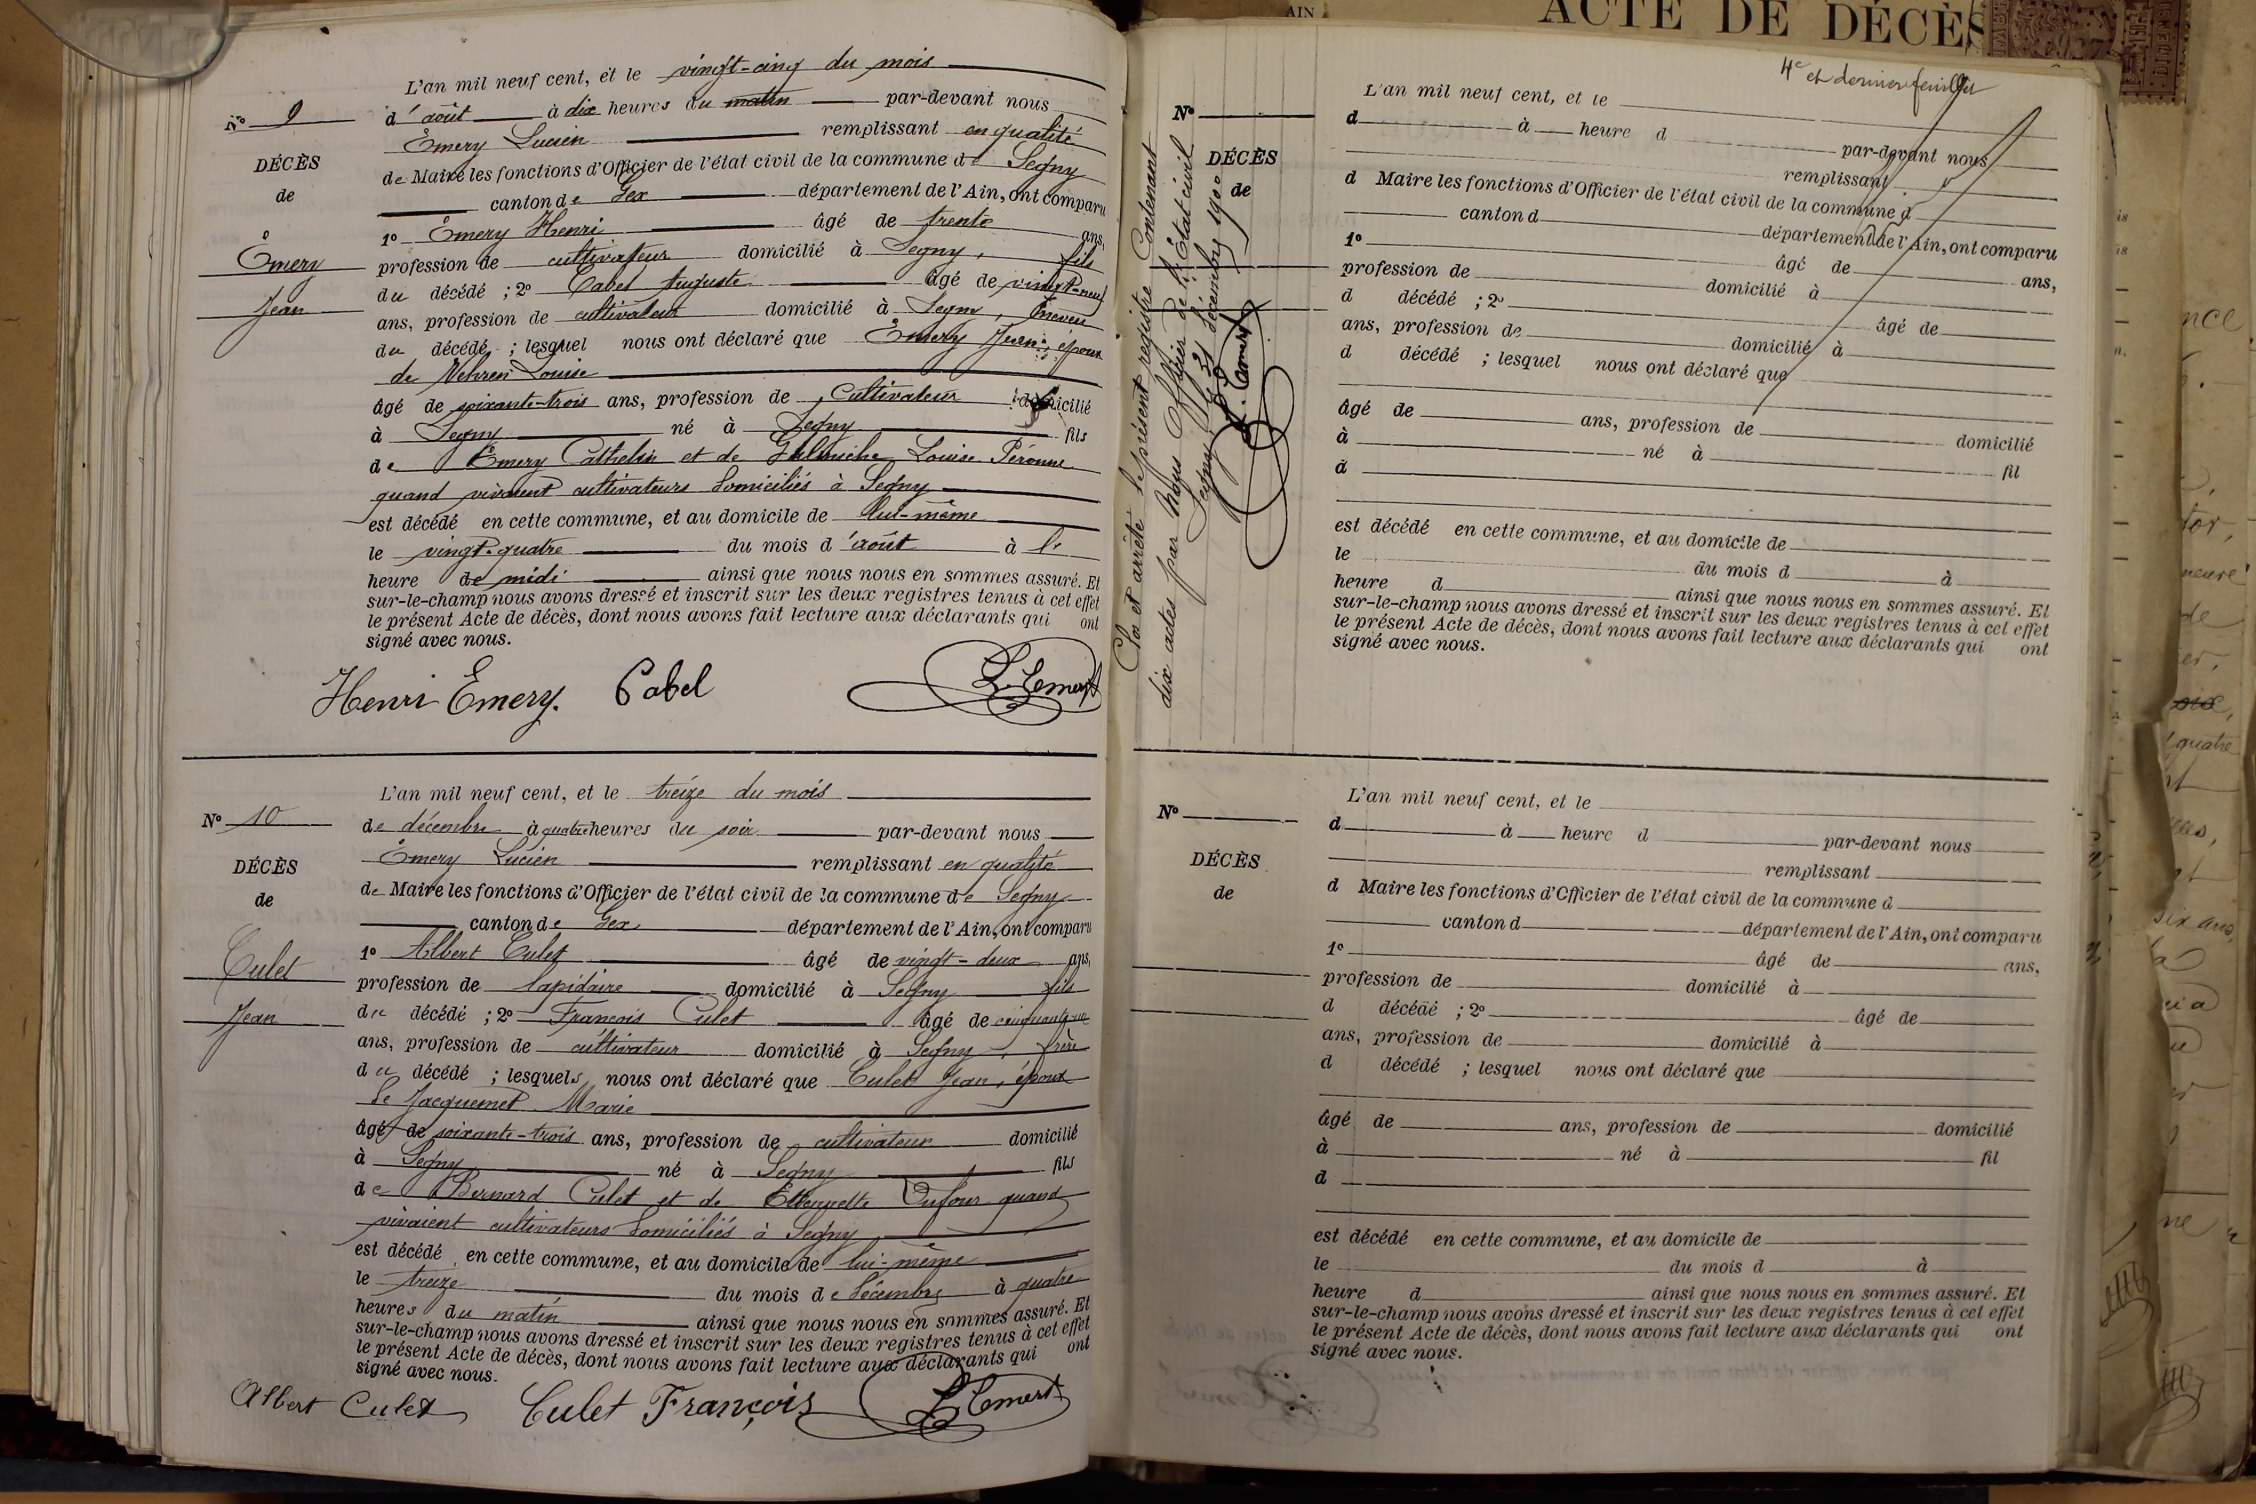 L'an mil neuf cent, et le vingt-cinq du mois
N° 9
d'août à dix heures du matin par-devant nous
Émery Lucien remplissant en qualité
DÉCÈS
de Maire les fonctions d'Officier de l'état civil de la commune de Segny
de
canton de Gex département de l'Ain, ont comparu
1° Émery Henri âgé de trente ans,
Émery
profession de cultivateur domicilié à Segny, fils
du décédé ; 2° Cabel Auguste âgé de vingt-neuf
Jean
ans, profession de cultivateur domicilié à Segny, neveu
du décédé ; lesquel nous ont déclaré que Émery Jean, époux
de Louise
âgé de soixante-trois ans, profession de cultivateur domicilié
à Segny né à Segny fils
de Émery et de Louise Péronne
quand vivaient cultivateurs domiciliés à Segny
est décédé en cette commune, et au domicile de lui-même
le vingt-quatre du mois d'août à l'
heure de midi ainsi que nous nous en sommes assuré. Et
sur-le-champ nous avons dressé et inscrit sur les deux registres tenus à cet effet
le présent Acte de décès, dont nous avons fait lecture aux déclarants qui ont
signé avec nous.
Henri Émery. Cabel L. Émery
L'an mil neuf cent, et le treize du mois
N° 10
de décembre à quatre heures du soir par-devant nous
Émery Lucien remplissant en qualité
DÉCÈS
de Maire les fonctions d'Officier de l'état civil de la commune de Segny
de
canton de Gex département de l'Ain, ont comparu
1° Albert Culet âgé de vingt-deux ans,
Culet
profession de lapidaire domicilié à Segny fils
du décédé ; 2° François Culet âgé de
Jean
ans, profession de cultivateur domicilié à Segny, frère
du décédé ; lesquels nous ont déclaré que Culet Jean, époux
de Jacquemet Marie
âgé de soixante-trois ans, profession de cultivateur domicilié
à Segny né à Segny fils
de Bernard Culet et de Dufour quand
vivaient cultivateurs domiciliés à Segny
est décédé en cette commune, et au domicile de lui-même
le treize du mois de décembre à quatre
heures du matin ainsi que nous nous en sommes assuré. Et
sur-le-champ nous avons dressé et inscrit sur les deux registres tenus à cet effet
le présent Acte de décès, dont nous avons fait lecture aux déclarants qui ont
signé avec nous.
Albert Culet Culet François L. Émery
AIN
ACTE DE DÉCÈS
4e et dernier feuillet
Clos et arrêté le présent registre contenant
dix actes par Nous Officier de l'État civil
Segny, le 31 décembre 1900
L. Émery
L'an mil neuf cent, et le
N°
d à heure d par-devant nous
DÉCÈS
remplissant
de
d Maire les fonctions d'Officier de l'état civil de la commune d
canton d département de l'Ain, ont comparu
1° âgé de ans,
profession de domicilié à
d décédé ; 2° âgé de
ans, profession de domicilié à
d décédé ; lesquel nous ont déclaré que
âgé de ans, profession de domicilié
à né à fil
d
est décédé en cette commune, et au domicile de
le du mois d à
heure d ainsi que nous nous en sommes assuré. Et
sur-le-champ nous avons dressé et inscrit sur les deux registres tenus à cet effet
le présent Acte de décès, dont nous avons fait lecture aux déclarants qui ont
signé avec nous.
L'an mil neuf cent, et le
N°
d à heure d par-devant nous
remplissant
DÉCÈS
d Maire les fonctions d'Officier de l'état civil de la commune d
de
canton d département de l'Ain, ont comparu
1° âgé de ans,
profession de domicilié à
d décédé ; 2° âgé de
ans, profession de domicilié à
d décédé ; lesquel nous ont déclaré que
âgé de ans, profession de domicilié
à né à fil
d
est décédé en cette commune, et au domicile de
le du mois d à
heure d ainsi que nous nous en sommes assuré. Et
sur-le-champ nous avons dressé et inscrit sur les deux registres tenus à cet effet
le présent Acte de décès, dont nous avons fait lecture aux déclarants qui ont
signé avec nous.